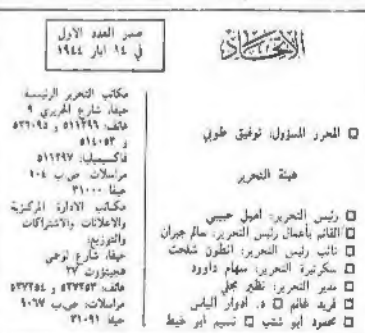 صدر العدد الأول
في ١٤ ايار ١٩٤٤
الاتحاد
المحرر المسؤول: توفيق طوبي
هيئة التحرير
رئيس التحرير: اميل حبيبي
القائم بأعمال رئيس التحرير: سالم جبران
نائب رئيس التحرير: انطون شلحت
سكرتيرة التحرير: سهام داوود
مدير التحرير: نظير مجلي
فريد غانم د. ادوار الياس
محمود ابو شنب نسيم ابو خيط
مكاتب التحرير الرئيسة
حيفا، شارع الحريري ٩
هاتف: ٥١١٢٩٦ و ٥٣٦٠٩٥
و ٥١٤٠٥٣
فاكسيميل: ٥١١٢٩٧
مراسلات: ص.ب ١٠٤
حيفا ٣١٠٠٠
مكاتب الادارة المركزية
والاعلانات والاشتراكات
والتوزيع:
حيفا، شارع لوحمي
هجيتؤوت ٢٧
هاتف: ٥٣٧٢٥٣ و ٥٣٧٢٥٤
مراسلات: ص.ب ٩٠٦٧
حيفا ٣١٠٩١